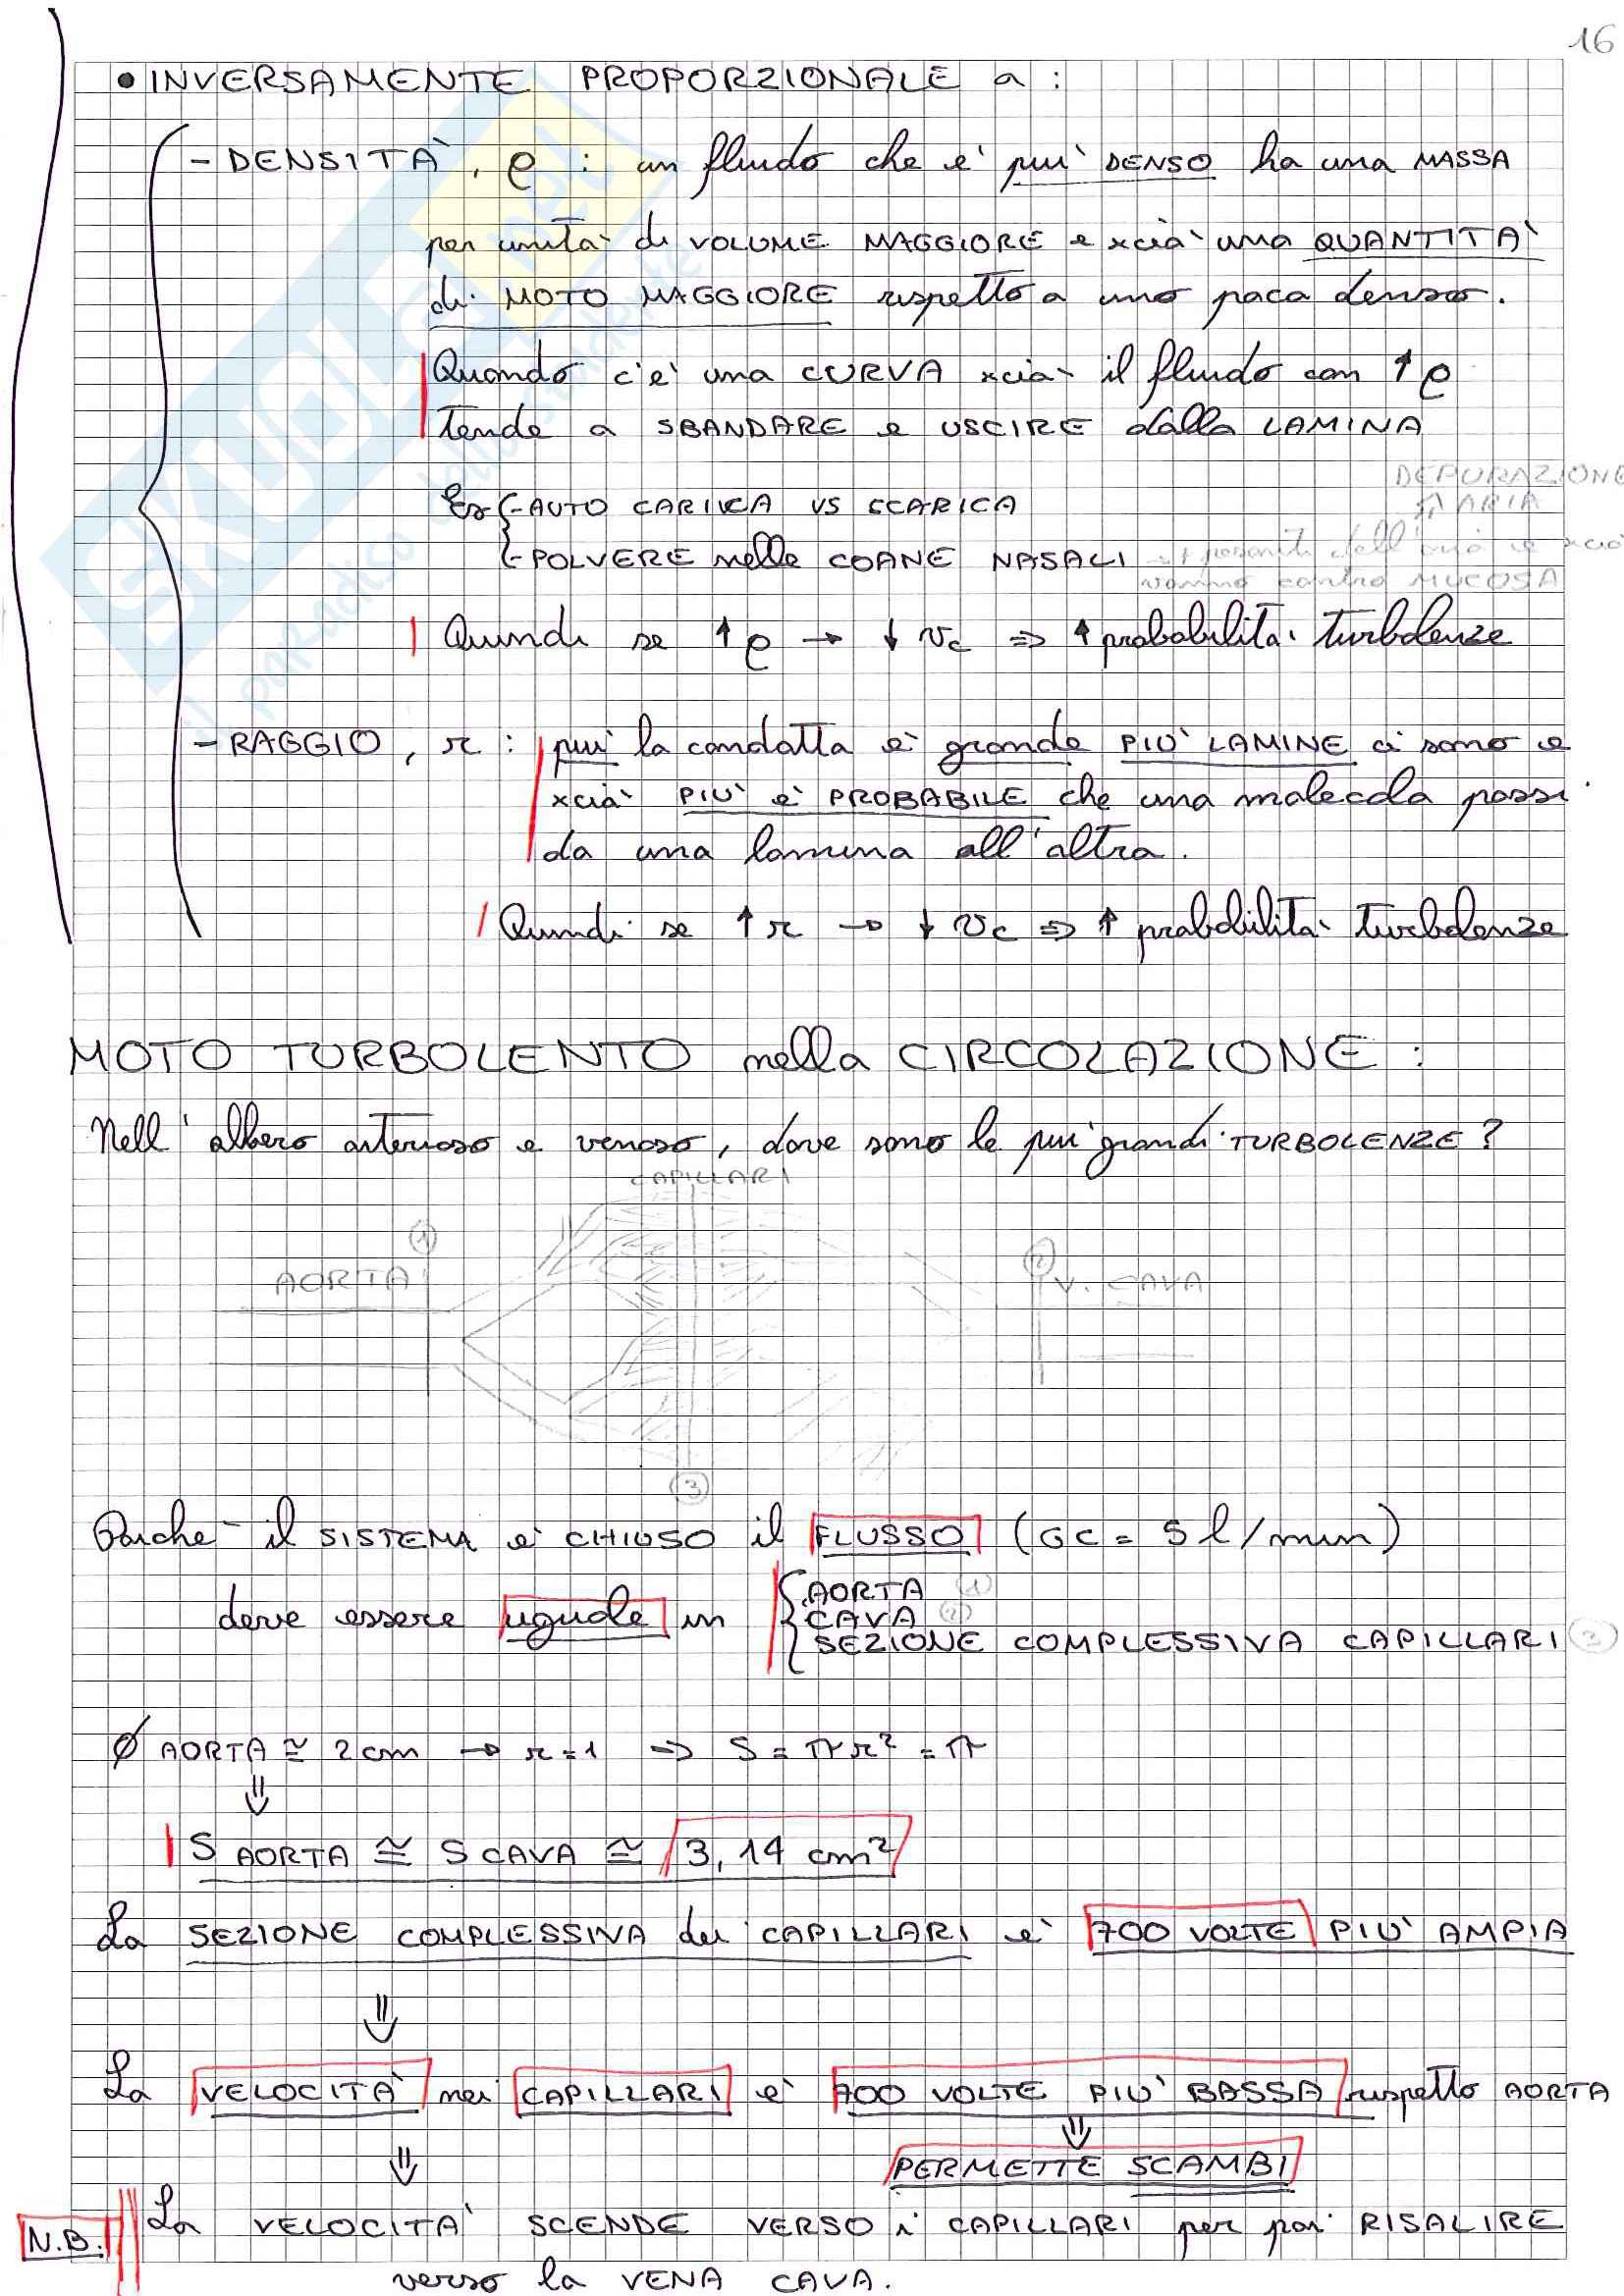 16
• INVERSAMENTE PROPORZIONALE a :
- DENSITÀ, ρ : un fluido che è più DENSO ha una MASSA
per unità di VOLUME MAGGIORE e xciò una QUANTITÀ
di MOTO MAGGIORE rispetto a uno poco denso.
Quando c'è una CURVA xciò il fluido con ↑ ρ
tende a SBANDARE e USCIRE dalla LAMINA
DEPURAZIONE
ARIA
Es - AUTO CARICA VS SCARICA
- POLVERE nelle COANE NASALI + pesanti dell'aria e xciò
vanno contro MUCOSA
Quindi se ↑ ρ → ↓ vc ⇒ ↑ probabilità turbolenze
- RAGGIO, r : più la condotta è grande PIÙ LAMINE ci sono e
xciò PIÙ è PROBABILE che una molecola passi
da una lamina all'altra.
Quindi se ↑ r → ↓ vc ⇒ ↑ probabilità turbolenze
MOTO TURBOLENTO nella CIRCOLAZIONE :
Nell'albero arterioso e venoso, dove sono le più grandi TURBOLENZE ?
CAPILLARI
(1)
(2)
AORTA
V. CAVA
(3)
Poiché il SISTEMA è CHIUSO il FLUSSO (GC = 5 l/min)
deve essere uguale in
AORTA (1)
CAVA (2)
SEZIONE COMPLESSIVA CAPILLARI (3)
Ø AORTA ≅ 2 cm → r = 1 ⇒ S = π r² = π
⇓
S AORTA ≅ S CAVA ≅ 3,14 cm²
La SEZIONE COMPLESSIVA dei CAPILLARI è 700 VOLTE PIÙ AMPIA
⇓
La VELOCITÀ nei CAPILLARI è 700 VOLTE PIÙ BASSA rispetto AORTA
⇓ ⇓
PERMETTE SCAMBI
N.B. La VELOCITÀ SCENDE VERSO i CAPILLARI per poi RISALIRE
verso la VENA CAVA.
SKUOLA.net
il paradiso dello studente